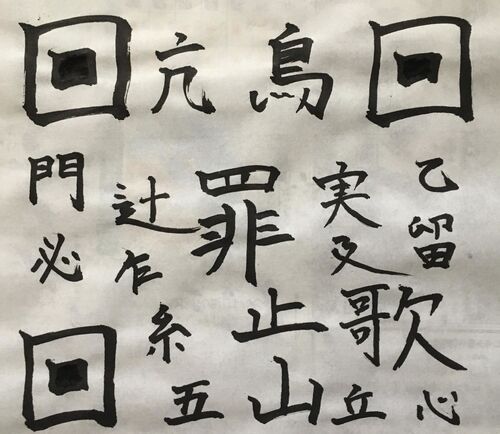 回亢鳥回
門辻罪実乙
必乍及留
糸止歌
回五山丘心